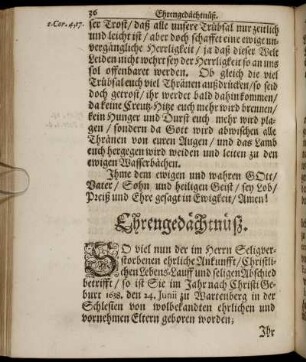 36 Ehrengedächtnüß.
2.Cor.4,17.
ser Trost/ daß alle unsere Trübsal nur zeitlich
und leicht ist / aber doch schaffet eine ewige un-
vergängliche Herrligkeit / ja daß dieser Welt
Leiden nicht wehrt sey der Herrligkeit so an uns
sol offenbaret werden. Ob gleich die viel
Trübsal euch viel Thränen außdrücken/ so seid
doch getrost/ ihr werdet bald dahin kommen/
da keine Creutz-Hitze euch mehr wird brennen/
kein Hunger und Durst euch mehr wird pla-
gen / sondern da Gott wird abwischen alle
Thränen von euren Augen / und das Lamb
euch hergegen wird weiden und leiten zu den
ewigen Wasserbächen.
Ihme dem ewigen und wahren GOtt/
Vater/ Sohn und heiligen Geist / sey Lob/
Preiß und Ehre gesagt in Ewigkeit/ Amen!
Ehrengedächtnüß.
SO viel nun der im Herrn Seligver-
storbenen ehrliche Ankunfft/ Christli-
chen Lebens-Lauff und seligen Abschied
betrifft/ so ist Sie im Jahr nach Christi Ge-
burt 1618. den 24. Junii zu Wartenberg in der
Schlesien von wolbekandten ehrlichen und
vornehmen Eltern geboren worden.
Ihr